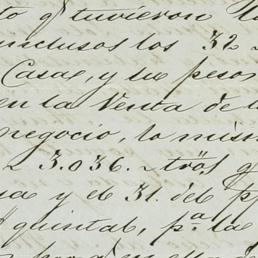 to q̃ tuvieron
inclusos los 32
Casas, y los pesos
en la Venta de
negocio, lo mism
3.036.
y el 31. del pp
quintal, p.a la